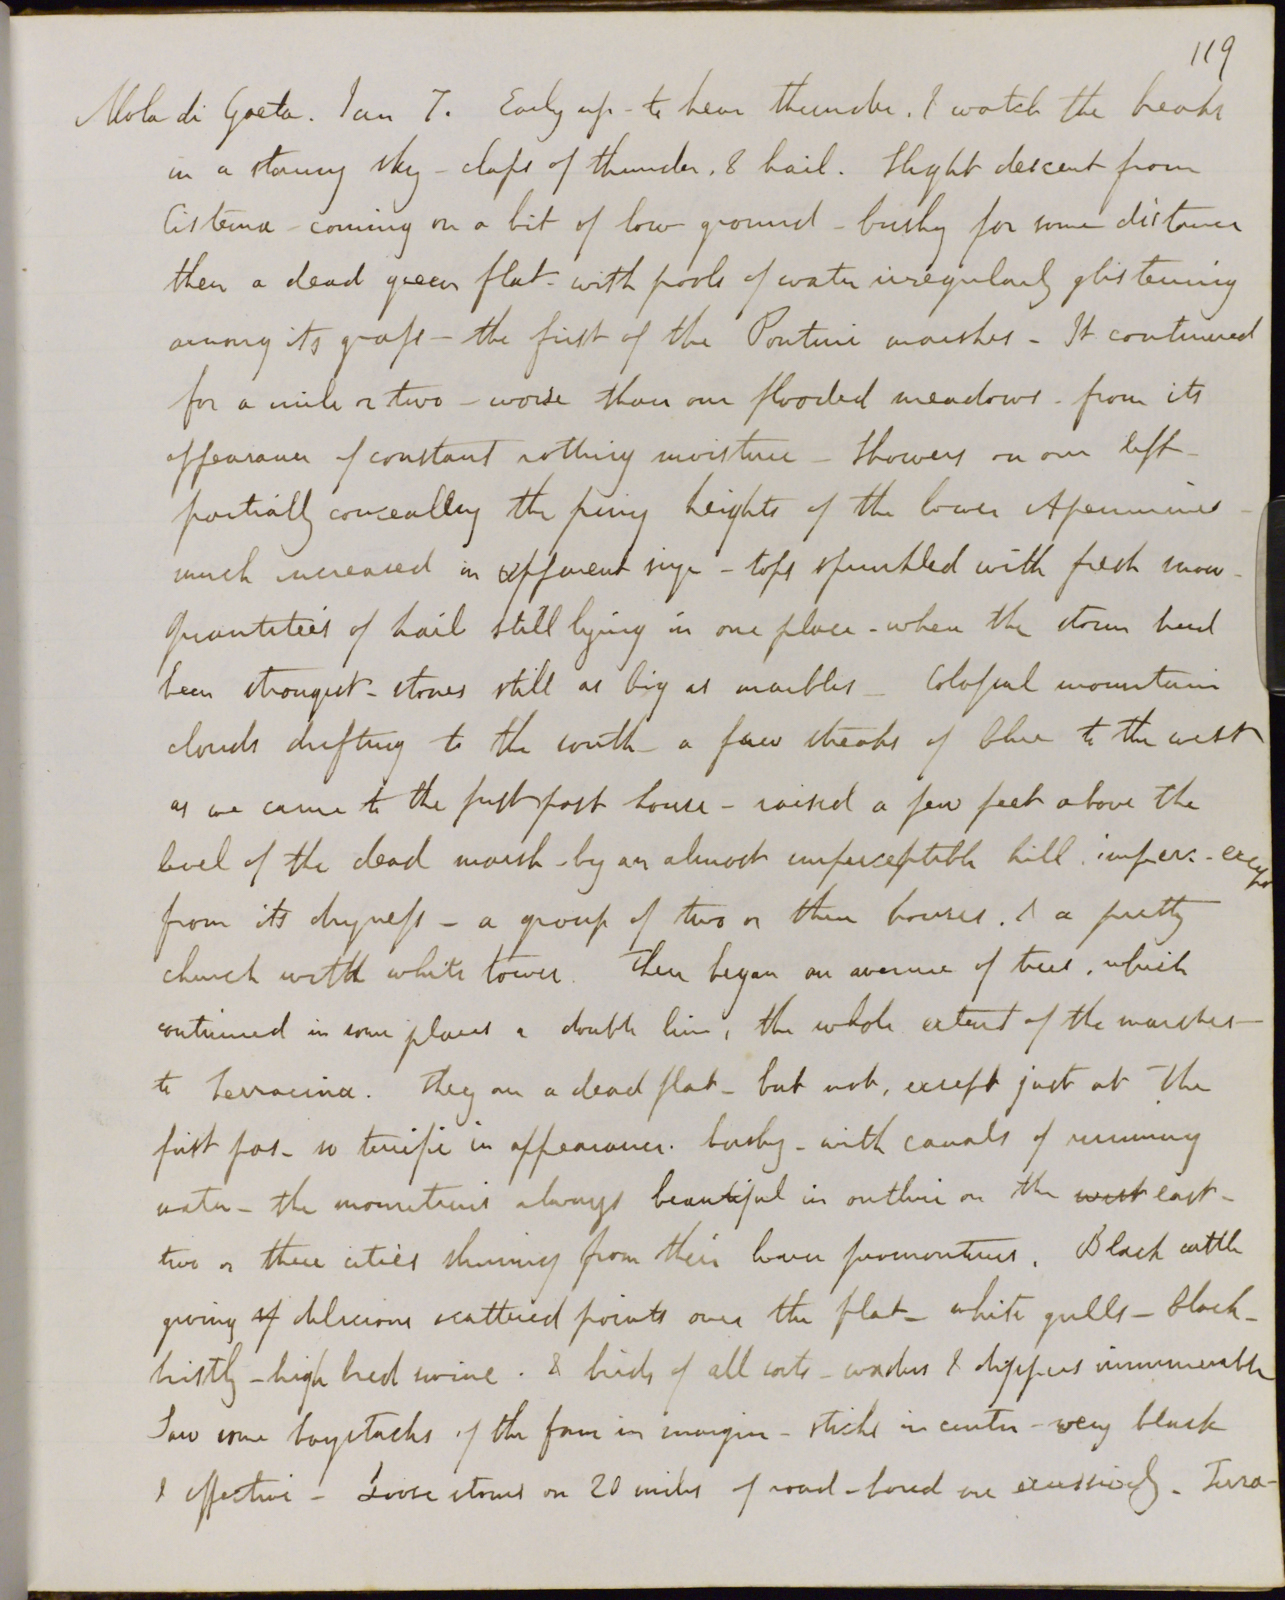 119
Mola di Gaeta. Jan 7. Early up - to hear thunder, & watch the breaks
in a stormy sky - claps of thunder, & hail. Slight descent from
Cisterna - coming on a bit of low ground - bushy for some distance
then a dead green flat - with pools of water irregularly glistening
among its grass - the first of the Pontine marshes - It continued
for a mile or two - worse than our flooded meadows - from its
appearance of constant rotting moisture - Showers on our left -
partially concealing the piny heights of the lower Apennines -
much increased in apparent size - tops sprinkled with fresh snow -
Quantities of hail still lying in one place - where the storm had
been strongest - stones still as big as marbles - Colossal mountain
clouds drifting to the south - a few streaks of blue to the west
as we came to the first post house - raised a few feet above the
level of the dead marsh - by an almost imperceptible hill. imperc - except
from its dryness - a group of two or three houses, & a pretty
church with white tower. Then began an avenue of trees, which
continued in some places a double line, the whole extent of the marshes -
to Terracina. They are a dead flat - but not, except just at the
first pos - so terrific in appearance. bushy - with canals of running
water - the mountains always beautiful in outline on the west east -
two or three cities shining from their lower promontories. Black cattle
giving of delicious scattered points over the flat - white gulls - black -
bristly - high bred swine. & birds of all sorts - waders & dippers innumerable
Saw some haystacks of the form in margin - sticks in center - very black
& effective - Loose stones on 20 miles of road - bored me excessively - Terra-